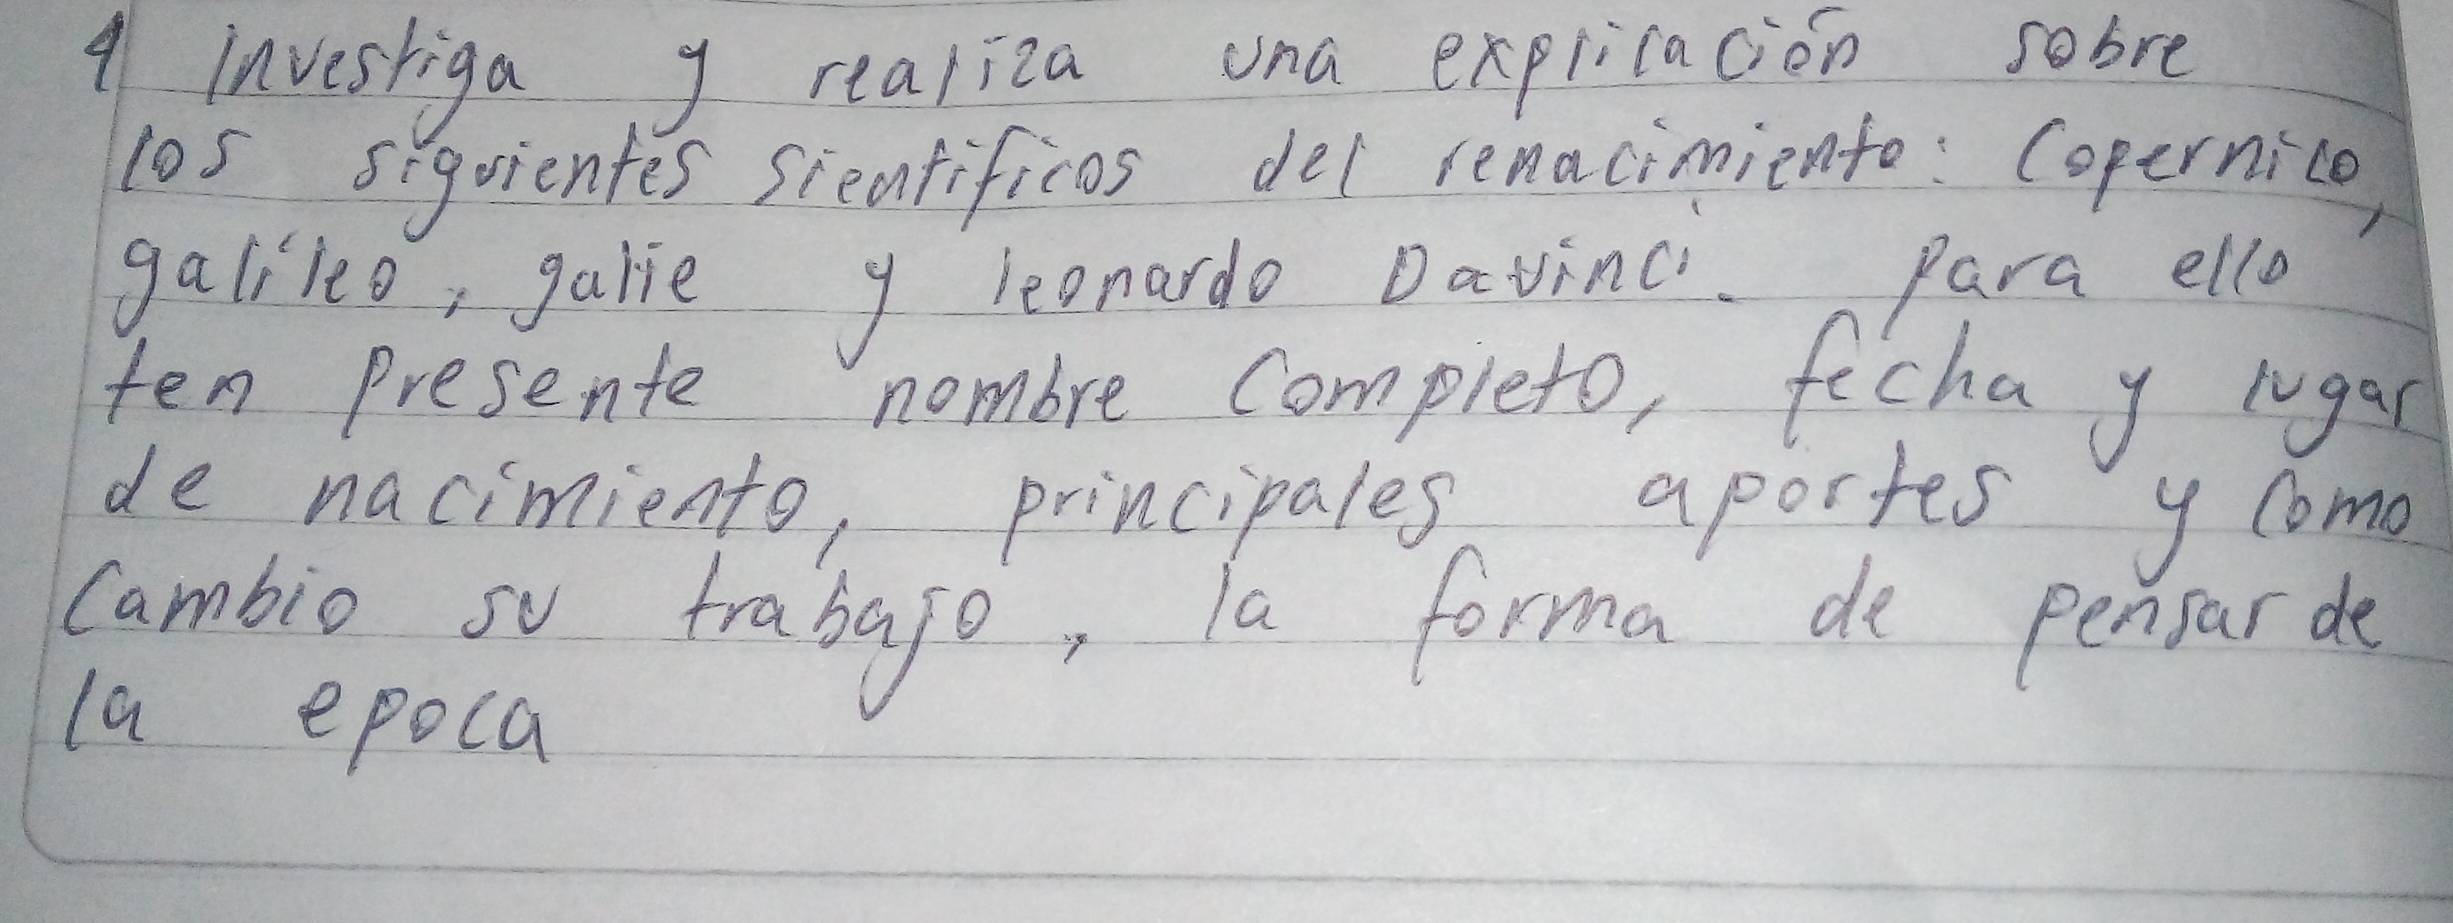 4 investiga y realiza una explicación sobre
los siguientes sientificos del renacimiento: Copernico,
galileo, galie y leonardo Davinci. para ello
ten presente nombre completo, fecha y lugar
de nacimiento, principales aportes y como
cambio su trabajo, la forma de pensar de
la epoca